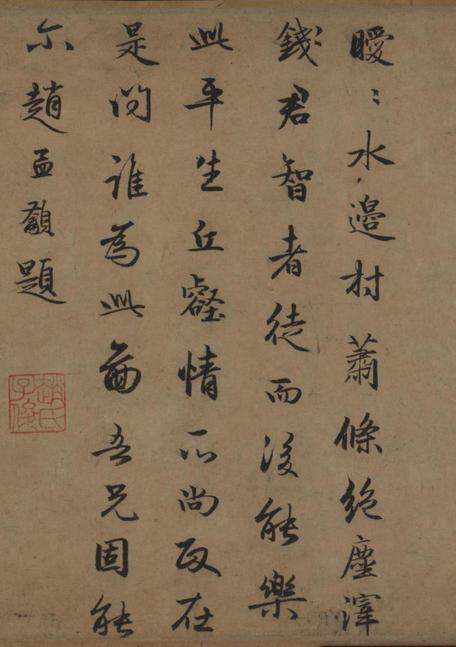 曖〻水邊村蕭條絕塵滓
錢君智者徒而後能樂
此平生丘壑情所尚政在
是問誰為此圖吾兄固能
尒趙孟籲題
趙氏子俊